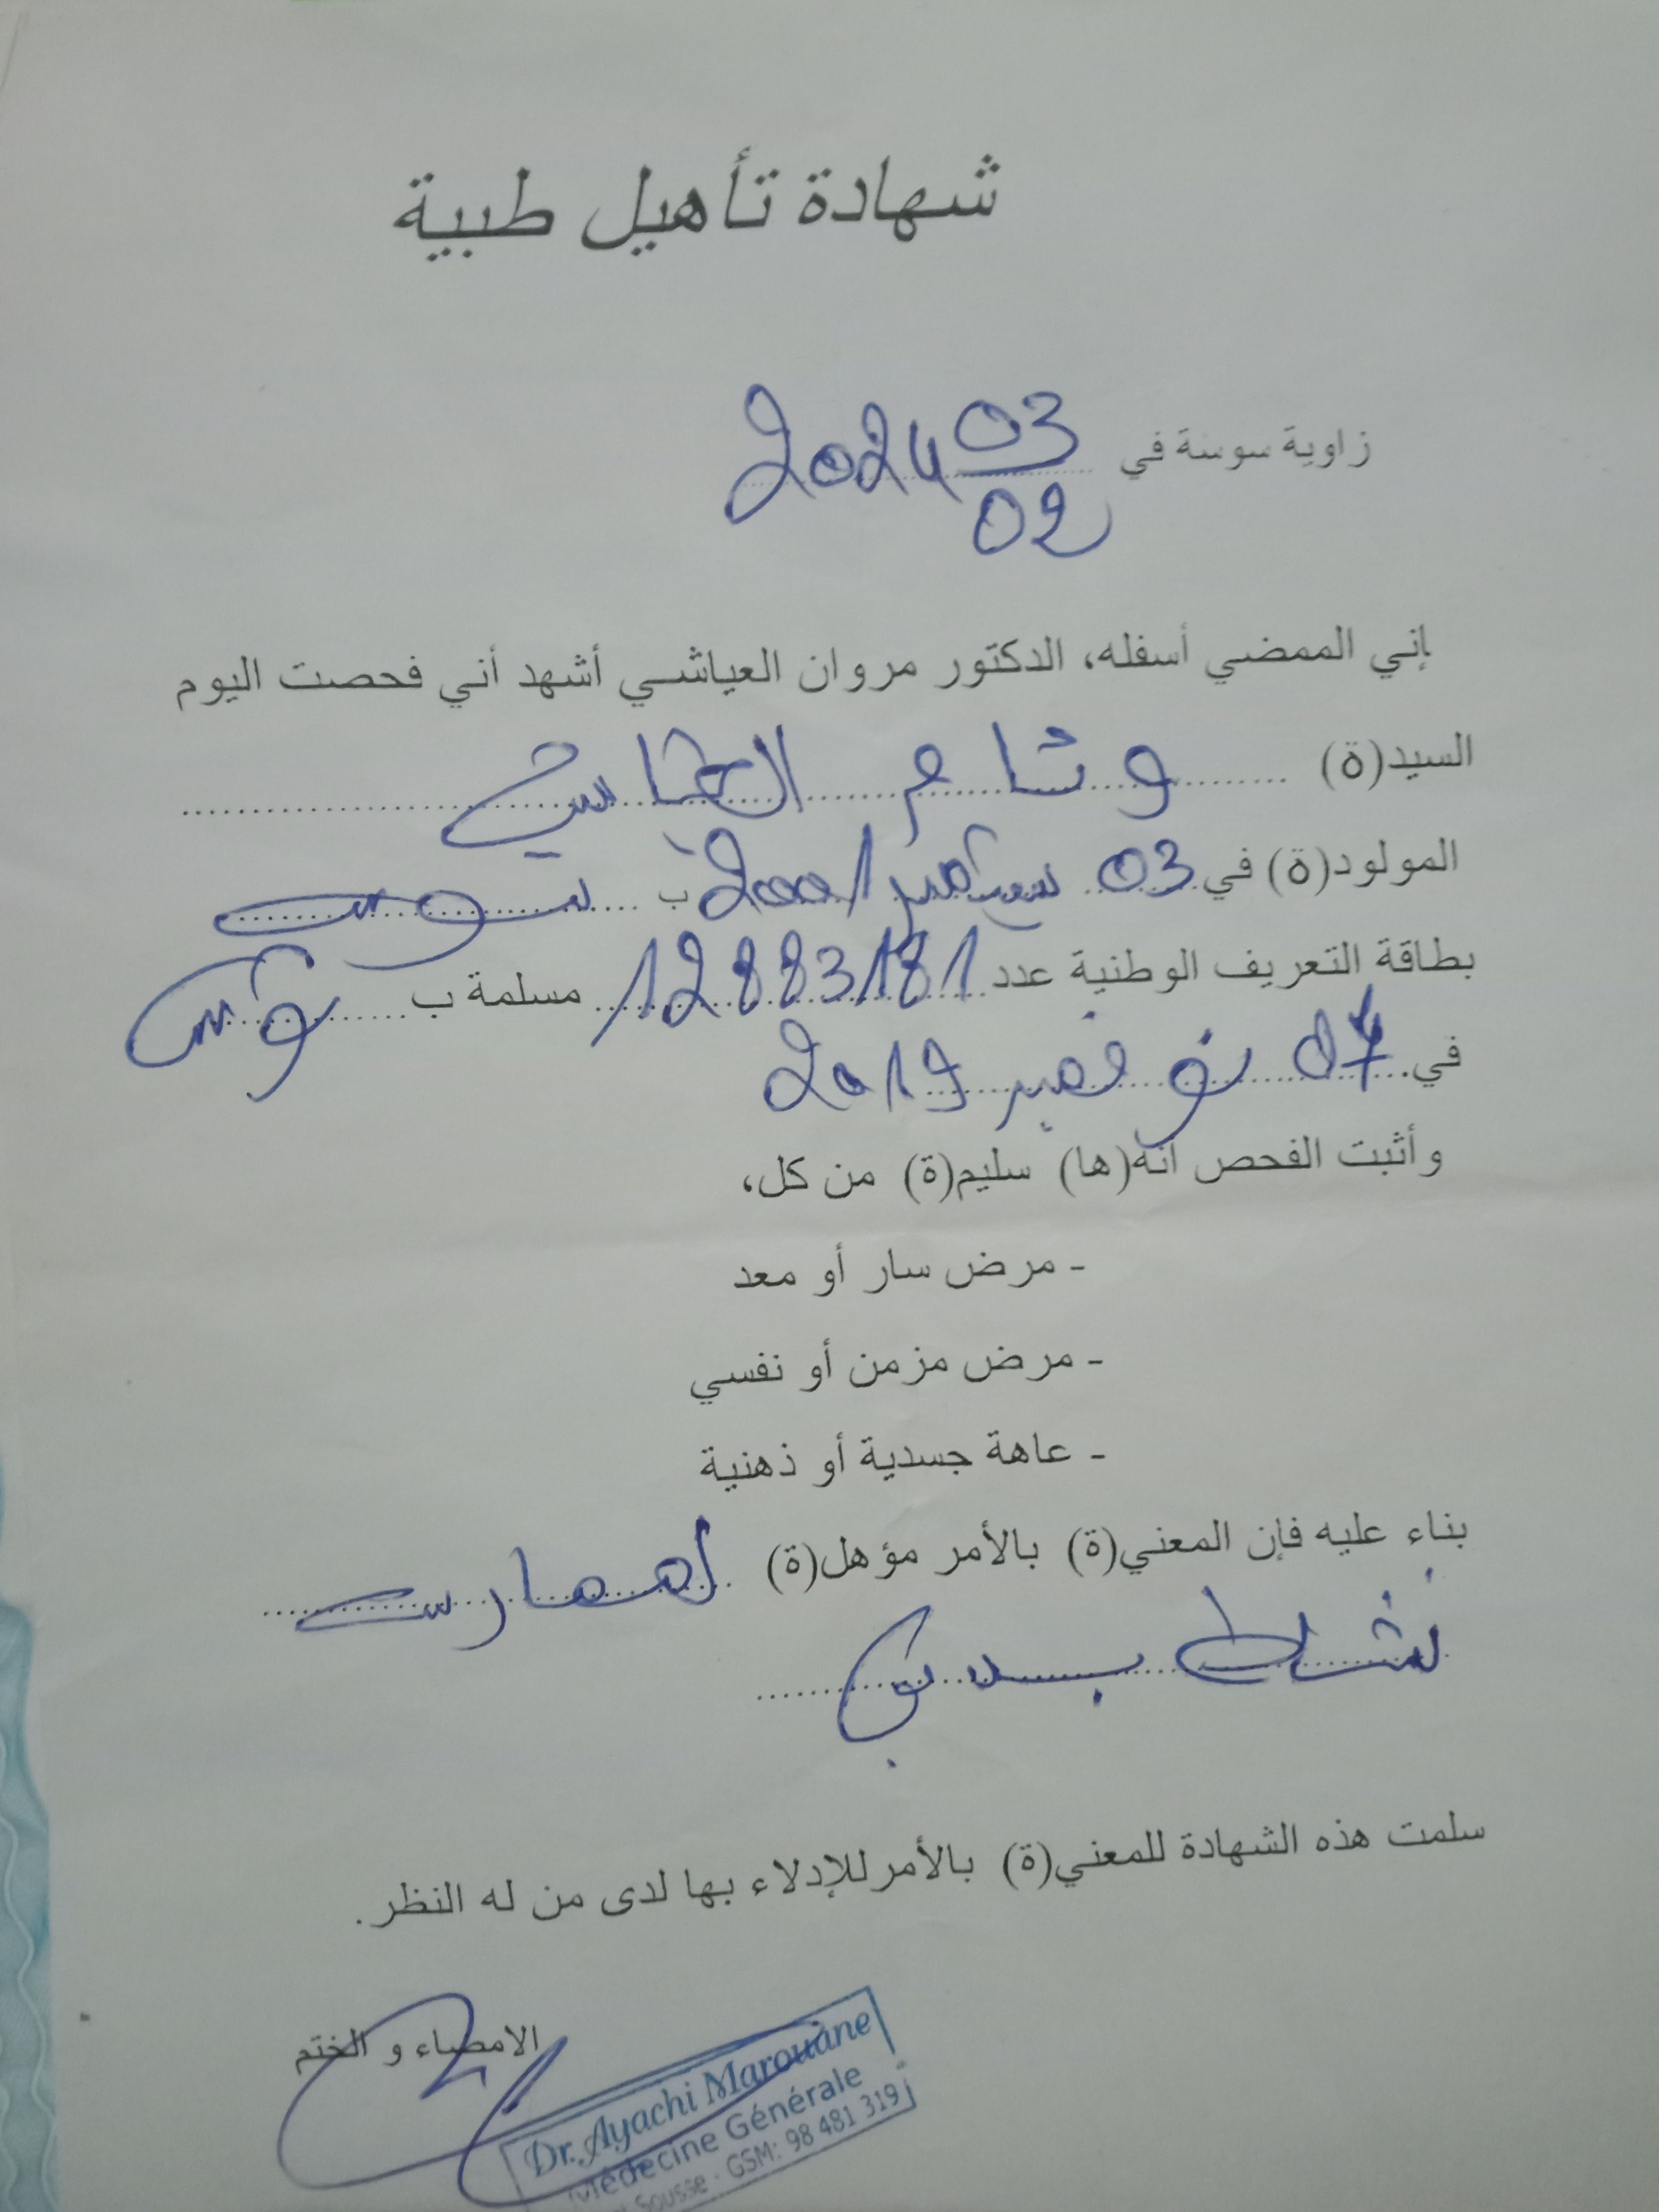 شهادة تأهيل طبية
زاوية سوسة في 03/02 2024
إني الممضي أسفله، الدكتور مروان العياشي أشهد أني فحصت اليوم
السيد(ة) وئام
المولود(ة) في 03 سبتمبر 2001 ب سوسة
بطاقة التعريف الوطنية عدد 12883181 مسلمة ب تونس
في 07 نوفمبر 2019
وأثبت الفحص أنه(ها) سليم(ة) من كل،
- مرض سار أو معد
- مرض مزمن أو نفسي
- عاهة جسدية أو ذهنية
بناء عليه فإن المعني(ة) بالأمر مؤهل(ة) لممارسة
نشاط بدني
سلمت هذه الشهادة للمعني(ة) بالأمر للإدلاء بها لدى من له النظر.
الامضاء و الختم
Dr. Ayachi Marouane
Médecine Générale
Sousse - GSM: 98 481 319